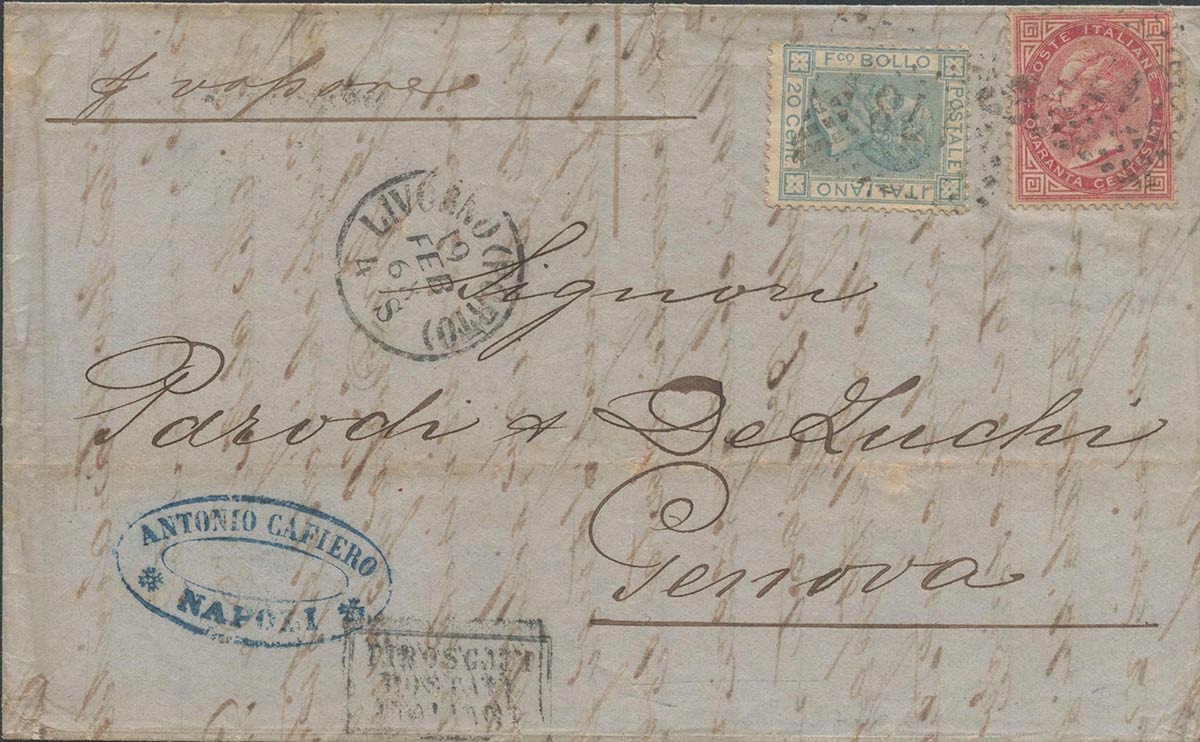 p vapore
F.co BOLLO
POSTALE
ITALIANO
20 Cent
POSTE ITALIANE
QUARANTA CENTESIMI
LIVORNO (PORTO)
19
FEB
4 S
Signori
Parodi & DeLuchi
Genova
ANTONIO CAFIERO
NAPOLI
PIROSCAFI
POSTALI